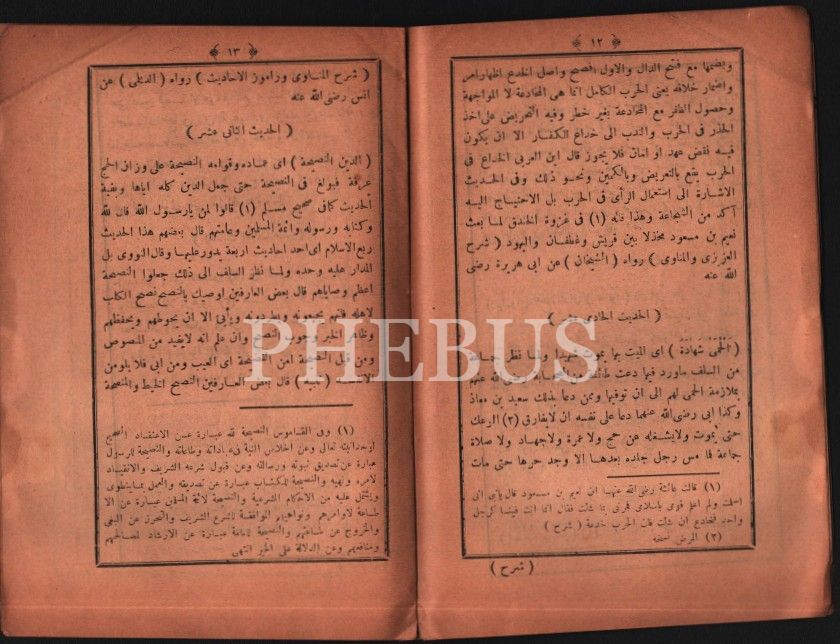 ﴿ ١٢ ﴾
وبضمها مع فتح الدال والاول افصح واصل الخدع اظهار امر
واضمار خلافه يعنى الحرب الكامل انما هى المخادعة لا المواجهة
وحصول الظفر مع المخادعة بغير خطر وفيه التحريض على اخذ
الحذر فى الحرب والندب الى خداع الكفار الا ان يكون
فيه نقض عهد او امان فلا يجوز قال ابن العربى الخداع فى
الحرب يقع بالتعريض وبالكمين ونحو ذلك وفى الحديث
الاشارة الى استعمال الرأى فى الحرب بل الاحتياج اليه
آكد من الشجاعة وهذا قاله (١) فى غزوة الخندق لما بعث
نعيم بن مسعود مخذلا بين قريش وغطفان واليهود ( شرح
العزيزى والمناوى ) رواه ( الشيخان ) عن ابى هريرة رضى
الله عنه
( الحديث الحادى عشر )
( اَلْحُمَّى شَهَادَةٌ ) اى الميت بها يموت شهيدا ولما نظر جماعة
من السلف ماورد فيها دعت طائفة من الصحابة رضى الله عنهم
بملازمة الحمى لهم الى ان توفيها وممن دعا بذلك سعيد بن معاذ
وكذا ابى رضى الله عنهما دعا على نفسه ان لايفارق (٢) الوعك
حتى يموت ولايشغله عن حج ولا عمرة ولاجهاد ولا صلاة
جماعة فما مس رجل جلده بعدها الا وجد حرها حتى مات
(١) قالت عائشة رضى الله عنها ان نعيم بن مسعود قال يانبى الله
اسلمت ولم اعلم قومى باسلامى فمرنى بما شئت فقال انما انت فينا كرجل
واحد فخادع ان شئت فان الحرب خدعة ( شرح )
(٢) المرض نسخه
( شرح )
﴿ ١٣ ﴾
( شرح المناوى وراموز الاحاديث ) رواه ( الديلمى ) عن
انس رضى الله عنه
( الحديث الثانى عشر )
( الدين النصيحة ) اى عماده وقوامه النصيحة على وزان الحج
عرفة فبولغ فى النصيحة حتى جعل الدين كله اياها وبقية
الحديث كما فى صحيح مسلم (١) قالوا لمن يارسول الله قال لله
وكتابه ورسوله وائمة المسلمين وعامتهم قال بعضهم هذا الحديث
ربع الاسلام اى احد احاديث اربعة يدور عليها وقال النووى بل
المدار عليه وحده ولما نظر السلف الى ذلك جعلوا النصيحة
اعظم وصاياهم قال بعض العارفين اوصيك بالنصح نصح الكلب
لاهله فانهم يجيعونه ويطردونه ويأبى الا ان يحوطهم ويحفظهم
وظاهر الخبر وجوب النصح وان علم انه لايفيد من المنصوص
ومن قبل النصيحة امن الفضيحة اى العيب ومن ابى فلا يلومن
الانفسه ( تنبيه ) قال بعض العارفين النصح الخيط والمنصحة
(١) وفى القاموس النصيحة لله عبارة عن الاعتقاد الصحيح
لوحدانيته تعالى وعن اخلاص النية فى عباداته وطاعاته والنصيحة للرسول
عبارة عن تصديق نبوته ورسالته وعن قبول شرعه الشريف والانقياد
لامره ونهيه والنصيحة للكتاب عبارة عن تصديقه والعمل بما ينطوى
ويشتمل عليه من الاحكام الشرعية والنصيحة لائمة المسلمين عبارة عن الا
طاعة لاوامرهم ونواهيهم الموافقة للشرع الشريف والتحرز عن البغى
والخروج عن طاعتهم والنصيحة للعامة عبارة عن الارشاد لمصالحهم
ومنافعهم وعن الدلالة على الخير انتهى
PHEBUS